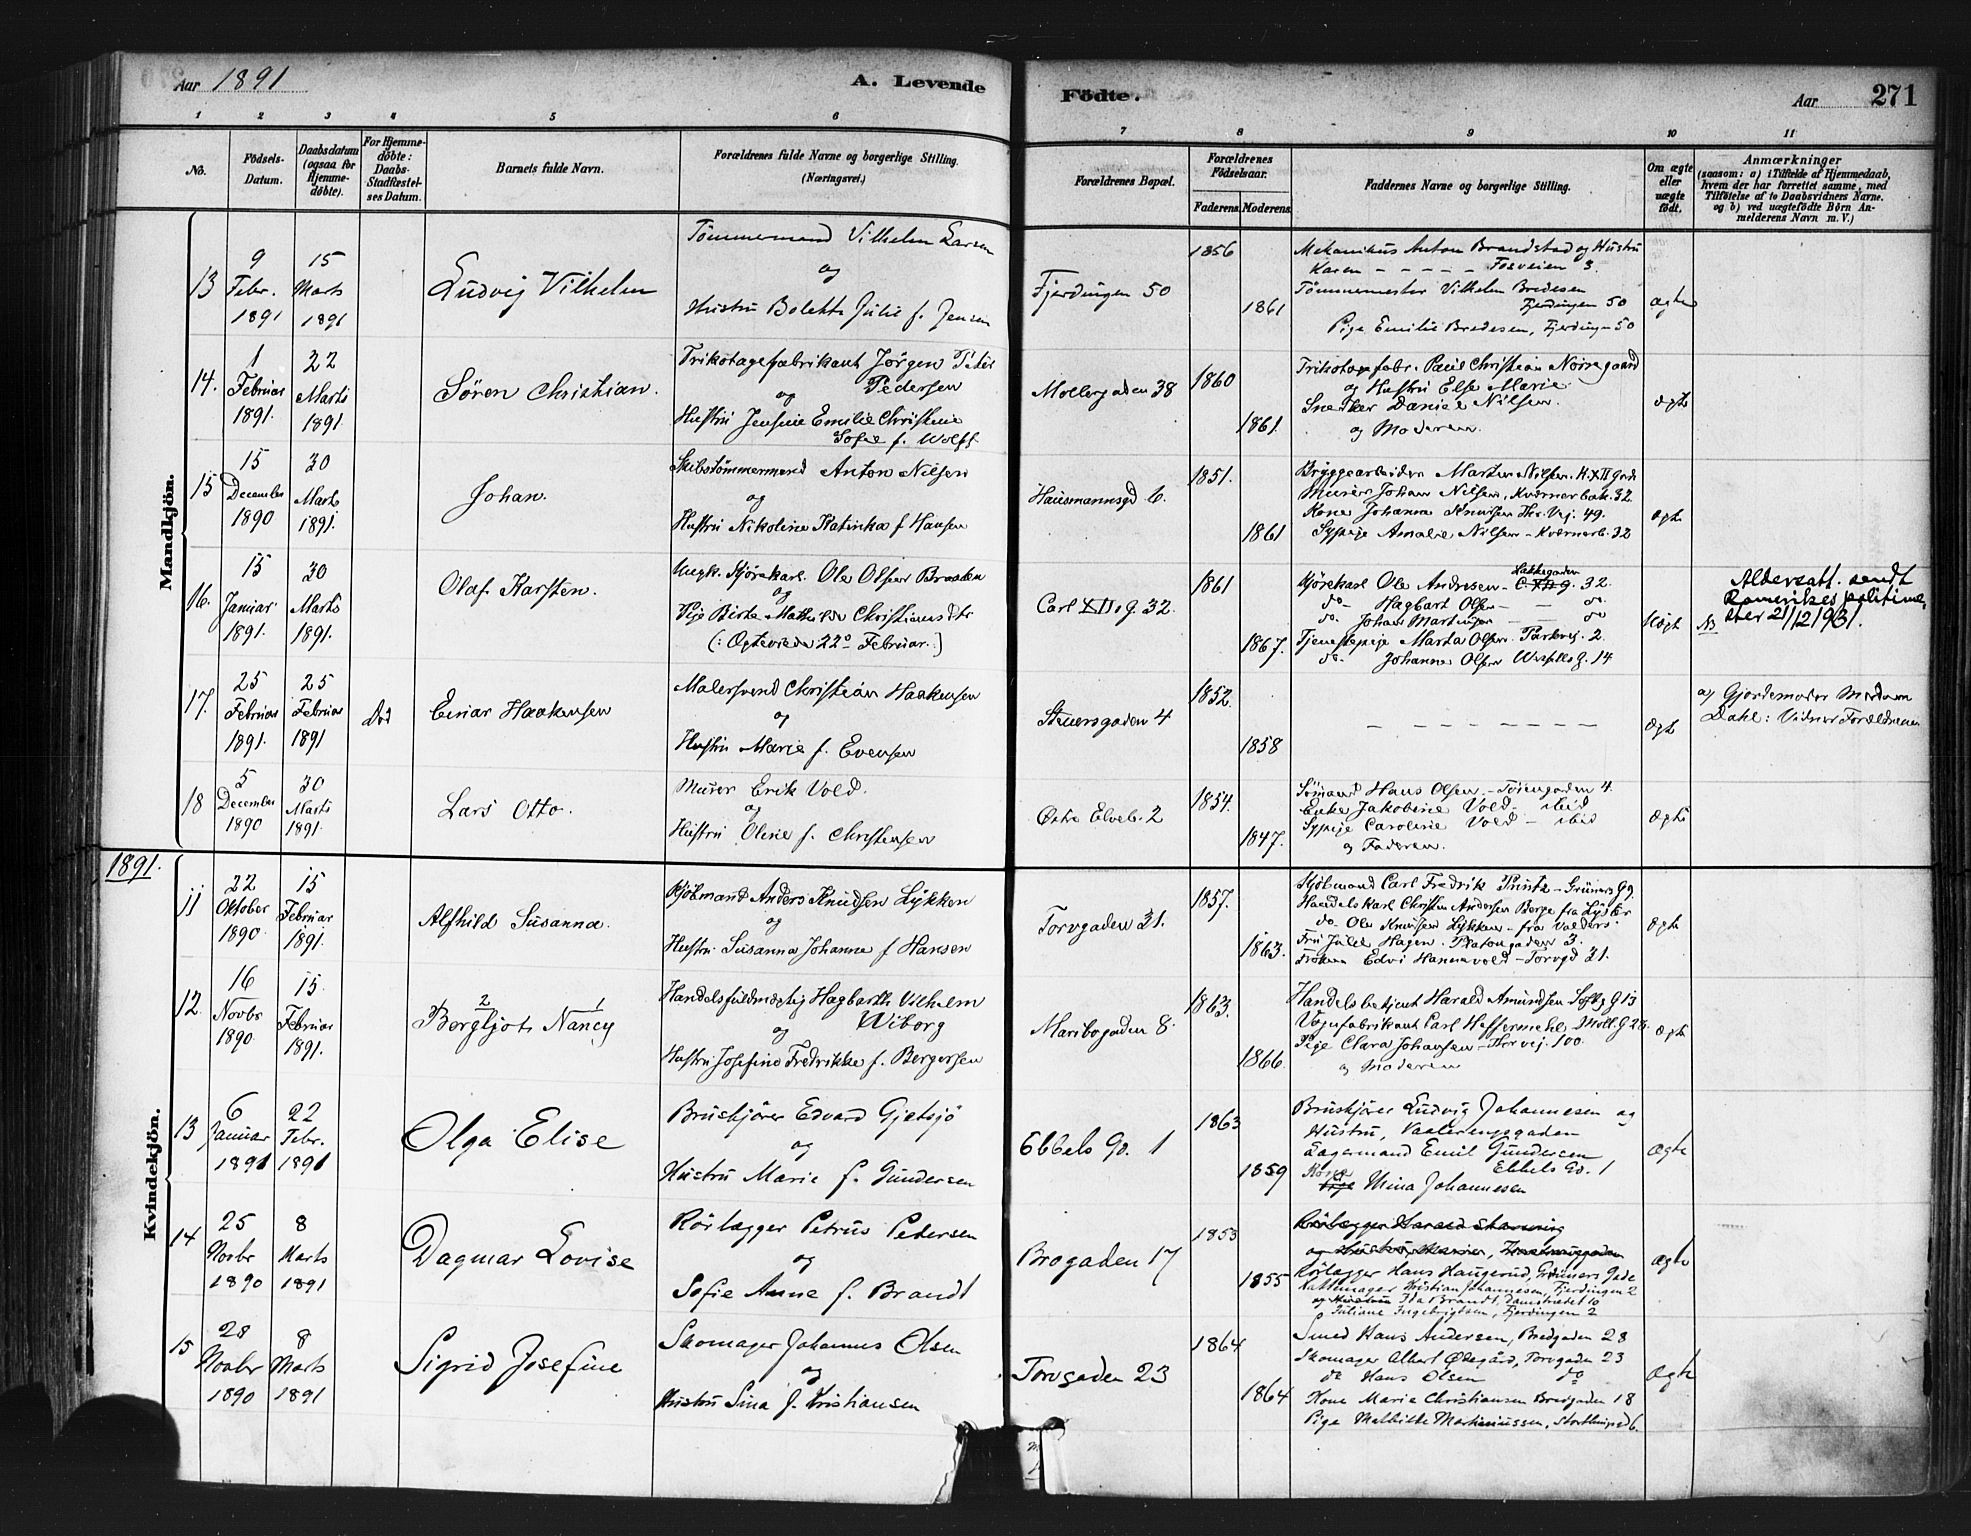 Aar 1891
A. Levende
Födte.
Aar
271
1 2 3 4 5 6 7 8 9 10 11
No.
Födsels-
Datum.
Daabsdatum
(ogsaa for
Hjemme-
döbte).
For Hjemme-
döbte:
Daabs-
Stadfæstel-
ses Datum.
Barnets fulde Navn.
Forældrenes fulde Navne og borgerlige Stilling.
(Næringsvei.)
Forældrenes Bopæl.
Forældrenes
Födselsaar.
Faderens.
Moderens.
Faddernes Navne og borgerlige Stilling.
Om ægte
eller
uægte
födt.
Anmærkninger
(saasom: a) i Tilfælde af Hjemmedaab,
hvem der har forrettet samme, med
Tilföielse af to Daabsvidners Navne.
og b) ved uægtefödte Börn An-
melderens Navn m. V.)
Mandkjön.
13
9
Febr.
1891
15
Marts
1891
Ludvig Vilhelm
Tömmermand Vilhelm Larsen
og
Hustru Bolette Julie f. Jensen
Fjerdingen 50
1856
1861
Mekanikus Anton Brandstad og Hustru
Karen - - - - - Fosveien 3.
Tömmermester Vilhelm Bredesen
Fjerdingen 50
Pige Emilie Bredesen, Fjerdingen 50
Ægte
14.
1
Februar
1891.
22
Marts
1891.
Sören Christian.
Trikotagefabrikant Jörgen Peter
Pedersen
og
Hustru Jensine Emilie Christine
Sofie f. Wolff
Mollergaden 38
1860
1861.
Trikotagefabr. Paul Christian Nörregaard
og Hustru Else Marie
Snedker Daniel Nilsen.
og Moderen.
ægte
15
15
December
1890
30
Marts
1891.
Johan.
Skibstömmermand Anton Nilsen
og
Hustru Nikoline Katinka f Hansen
Hausmannsgd 6.
1851.
1861
Bryggearbeider Marten Nilsen. K XII Gade
Murer Johan Nilsen, Kværnerbak. 32.
Kone Johanna Knudsen Thr. Vej. 49.
Sypige Amalie Nilsen - Kværnerb. 32
ægte
16.
15
Januar
1891.
30
Marts
1891.
Olaf Karsten.
Ungk. Kjörekarl. Ole Olsen Braaten
og
Pige Berte Mathilde Christiansdtr
(: Ægteviede 22de Februar.)
Carl XII g. 32.
1861
1867.
Kjörekarl Ole Andresen - Lakkegaden C. XII g. 32.
do- Hagbart Olsen - - do
do. Johan Martinsen - - do
Tjenestepige Marta Olsen. Parkvej. 2.
do- Johanne Olsen Wessells G. 14
Uægte
Aldersatt. sendt
Romerikes politime-
ster 21/12 1931.
17.
25
Februar
1891.
25
Februar
1891
Död
Einar Haakensen
Malersvend Christian Haakensen
og
Hustru Marie f. Evensen
Steensgaden 4
1852.
1858
- - - - - - - -
ægte
a) Gjordemoder Madam
Dahl: Vidner Forældrene
18
5
December
1890
30
Marts
1891.
Lars Otto.
Murer Erik Vold.
og
Hustru Oline f. Christensen
Østre Elveb. 2
1854.
1847.
Sömand Hans Olsen. - Töiengaden 4.
Enke Jakobine Vold - ibid
Sypige Caroline Vold - ibid
og Faderen.
ægte
1891.
Kvindekjön.
11
22
Oktober
1890.
15
Februar
1891.
Alfhild Susanna.
Kjöbmand Anders Knudsen Lykken
og
Hustru Susanna Johanne f Hansen
Torvgaden 31.
1857.
1863.
Kjöbmand Carl Fredrik Printz - Grüners G 9.
Handelskarl Christen Andersen Berge fra Lyster
do. Ole Knudsen Lykken - fra Valders.
Fru Julie Hagen. Platougaden 3.
Fröken Edvi Hannevold - Torvgd 31.
ægte
12.
16
Novbr
1890.
15.
Februar
1891.
2 1
Bergljot Nancy
Handelsfuldmægtig Hagbarth Vilhelm
Wiborg
og
Hustru Josefine Fredrikke f. Bergersen
Maribogaden 8.
1863.
1866.
Handelsbetjent Harald Amundsen Sofg G 13
Vognfabrikant Carl Heffermehl, Möll. G 28.
Pige Clara Johansen - Thr vej. 100.
og Moderen
ægte
13
6
Januar
1891
22
Febr.
1891
Olga Elise
Bruskjörer Edvard Gjetsjö
og
Hustru Marie f. Gundersen
Ebbels Ga. 1
1863
1859
Bruskjörer Ludvig Johannesen og
Hustru, Vaalerenggaden
Lagermand Emil Gundersen
Ebbels Ga. 1
Kone Pige Mina Johannesen
Ægte
14
25
Novbr
1890
8
Marts
1891
Dagmar Lovise
Rörlægger Petrus Pedersen
og
Sofie Anne f. Brandt
Brogaden 17
1853
1855
Rörlægger Hans Haugerud, Grüners Gade
Kristian Johannesen, Fjerdingen 2
og Hustru Ida Brandt, Damstrædet 10
Juliane Ingebrigtsen, Fjerdingen 2
Ægte
15
28
Novbr
1890
8
Marts
1891
Sigrid Josefine
Skomager Johannes Olsen
og
Hustru Lina f. Kristiansen
Torvgaden 23
1864
1864
Smed Hans Andersen, Bredgaden 28
Skomager Albert Ødegård, Torvgaden 23
do Hans Olsen do
Kone Marie Christiansen Bredgaden 18
Pige Mathilde Martiniussen, Storthingsgd 6.
Ægte